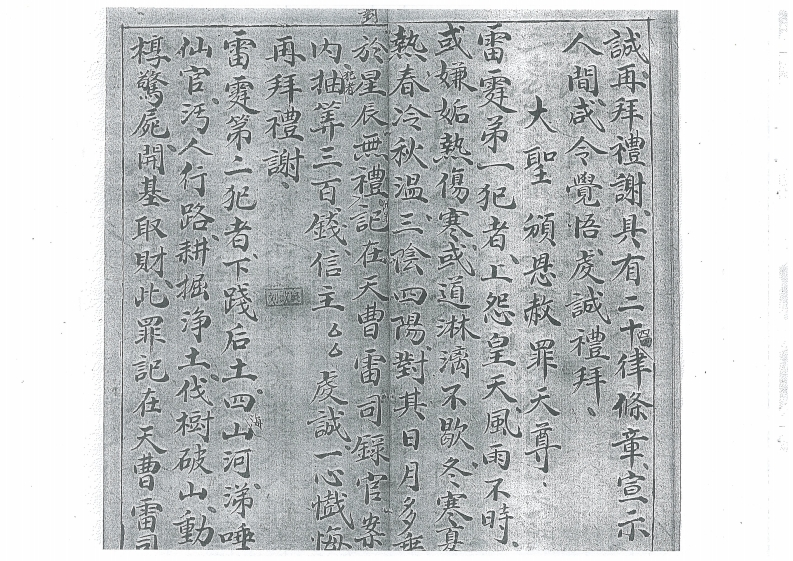 誠、再拜禮謝、具有二十四律條章、宣示
人間、咸令覺悟、虔誠禮拜、
大聖 頒恩赦罪天尊、
雷霆第一犯者、上怨皇天、風雨不時、
或嫌妬熱傷寒、或道淋漓不歇、冬寒夏
熱、春冷秋溫、三陰四陽、對其日月、多
於星辰無禮、記在天曹雷司錄官案
内、抽筭三百、錢信主厶厶虔誠、一心懺悔
再拜禮謝、
雷霆第二犯者、下踐后土、四山河海、涕唾
仙官、汚人行路、耕掘淨土、伐樹破山、動
槨驚屍、開基取財、此罪記在天曹雷司